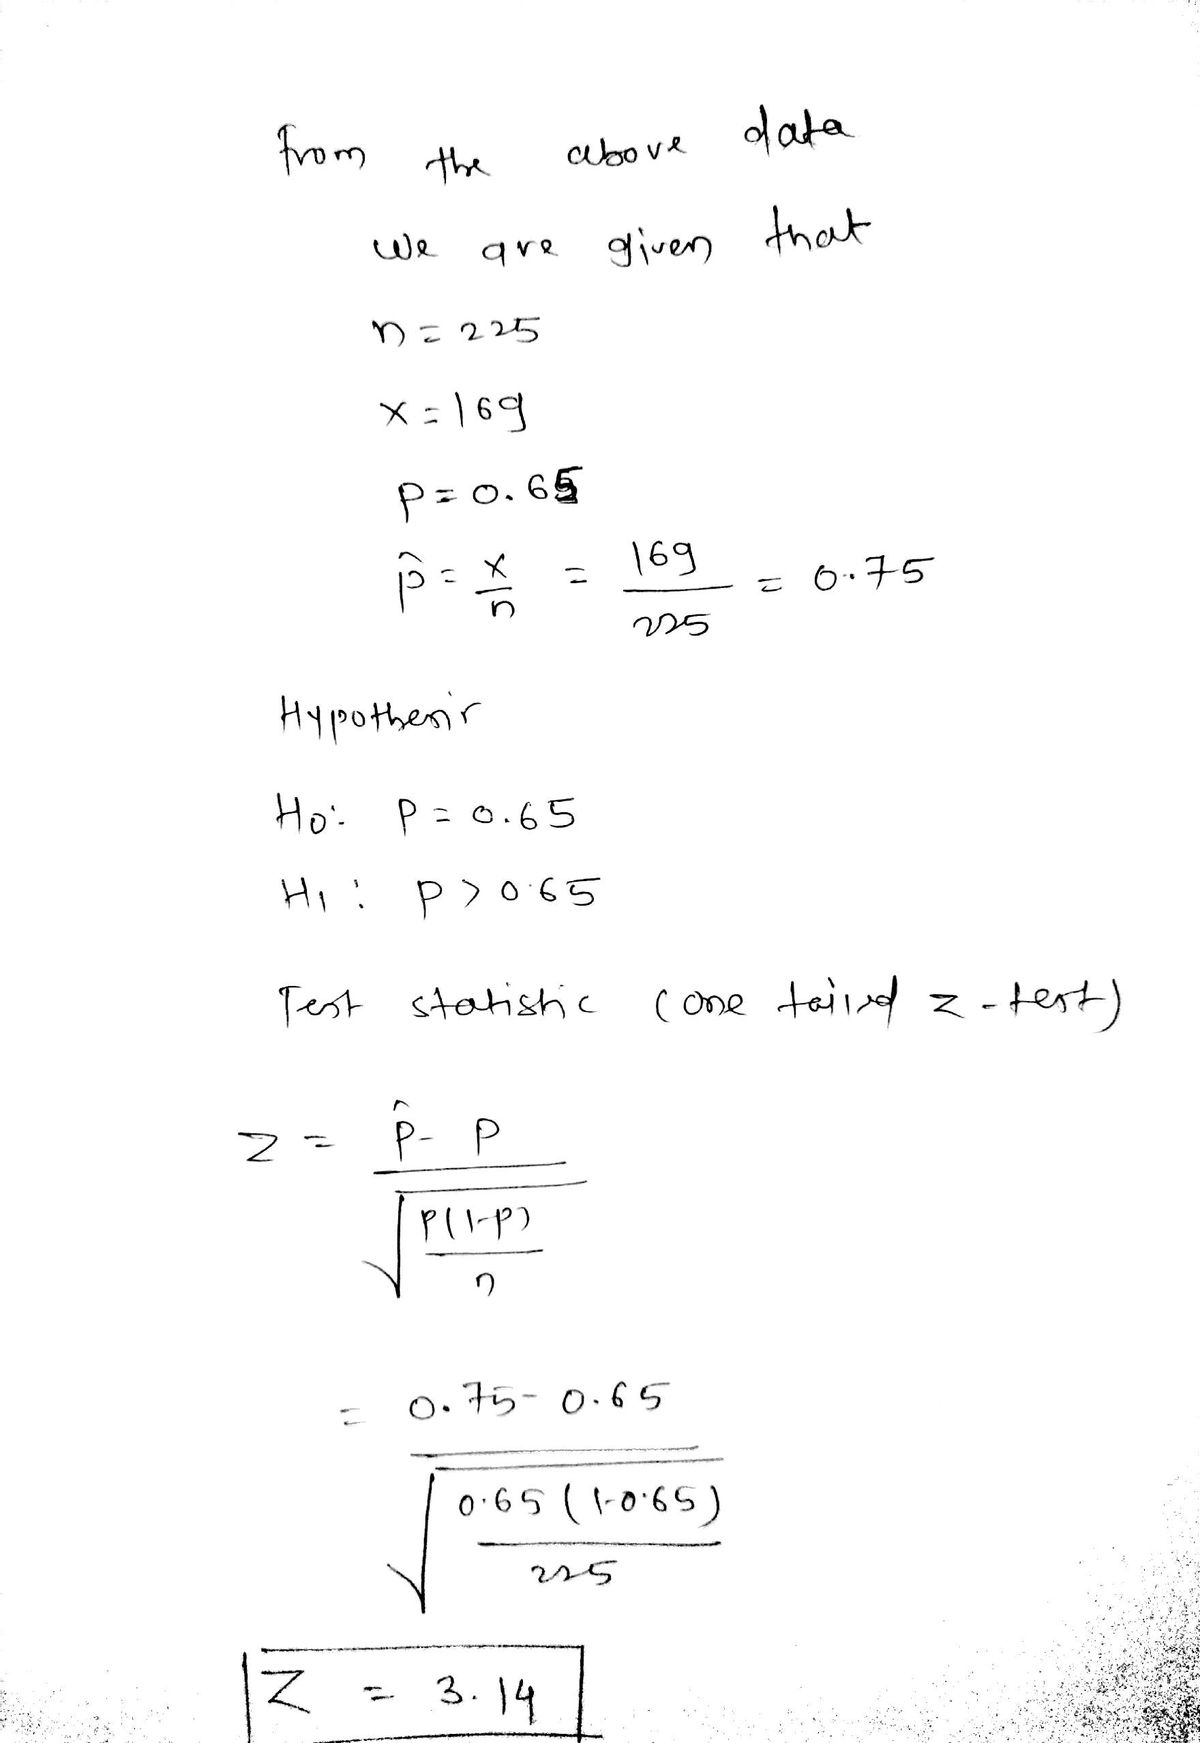 from the above data
we are given that
n = 225
x = 169
p = 0.65
p̂ = x/n = 169/225 = 0.75
Hypothesis
H0: P = 0.65
H1: P > 0.65
Test statistic (one tailed z-test)
z = (p̂ - p) / √(p(1-p)/n)
= (0.75 - 0.65) / √(0.65(1-0.65)/225)
Z = 3.14